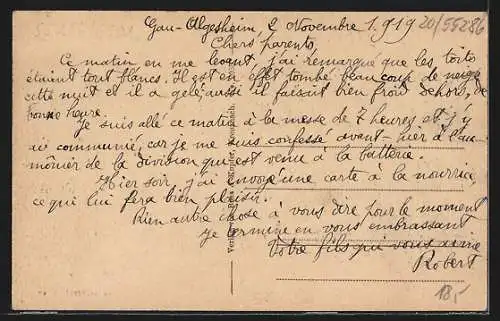 Gau-Algesheim, 2 Novembre 1.919 20/55286
Chers parents,
Ce matin en me levant, j'ai remarqué que les toits
étaient tout blancs. Il est en effet tombé beaucoup de neige
cette nuit et il a gelé, aussi il faisait bien froid dehors, de
bonne heure.
Je suis allé ce matin à la messe de 7 heures et j'y
ai communié, car je me suis confessé avant-hier à l'au-
mônier de la division qui est venu à la batterie.
Hier soir, j'ai envoyé une carte à la nourrice,
ce qui lui fera bien plaisir.
Rien autre chose à vous dire pour le moment
je termine en vous embrassant
Votre fils qui vous aime
Robert
18,-